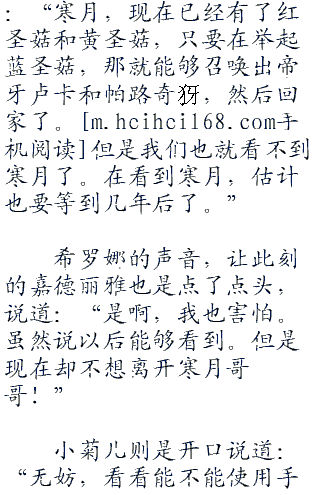 ：“寒月，现在已经有了红
圣菇和黄圣菇，只要在举起
蓝圣菇，那就能够召唤出帝
牙卢卡和帕路奇犽，然后回
家了。[m.hcihcil68.com手
机阅读]但是我们也就看不到
寒月了。在看到寒月，估计
也要等到几年后了。”
希罗娜的声音，让此刻
的嘉德丽雅也是点了点头，
说道：“是啊，我也害怕。
虽然说以后能够看到。但是
现在却不想离开寒月哥
哥！”
小菊儿则是开口说道：
“无妨，看看能不能使用手